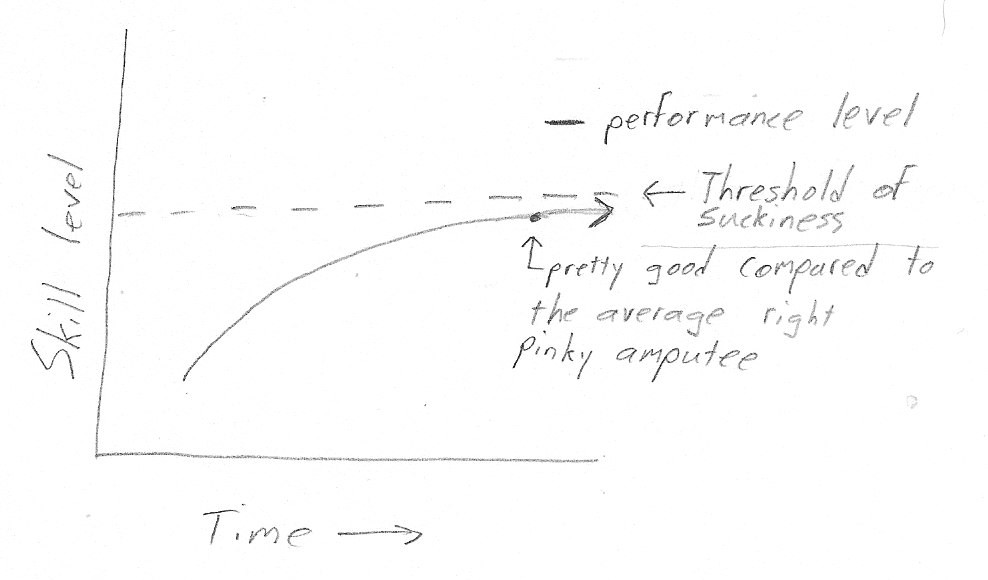 performance level
Threshold of
Suckiness
pretty good compared to
the average right
pinky amputee
Skill level
Time